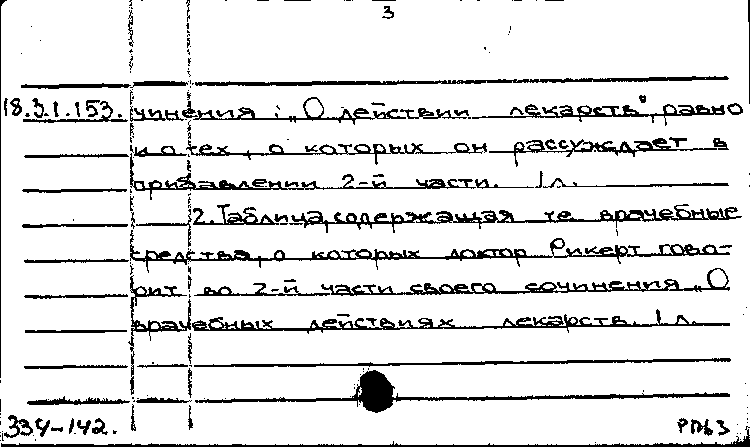 3
18.3.1.153. чинения: „О действии лекарств", равно
и о тех, о которых он рассуждает в
прибавлении 2-й части. 1 л.
2. Таблица, содержащая те врачебные
средства, о которых доктор Рикерт гово-
рит во 2-й части своего сочинения „О
врачебных действиях лекарств. 1 л.
334-142.